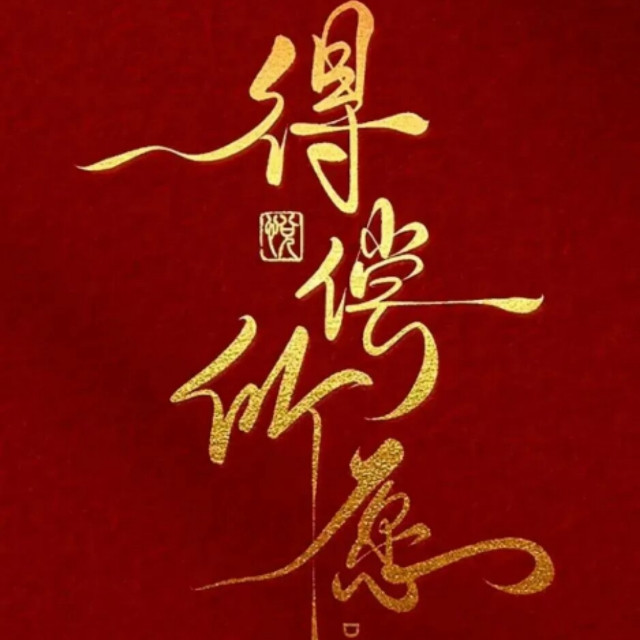 得偿所愿
悦